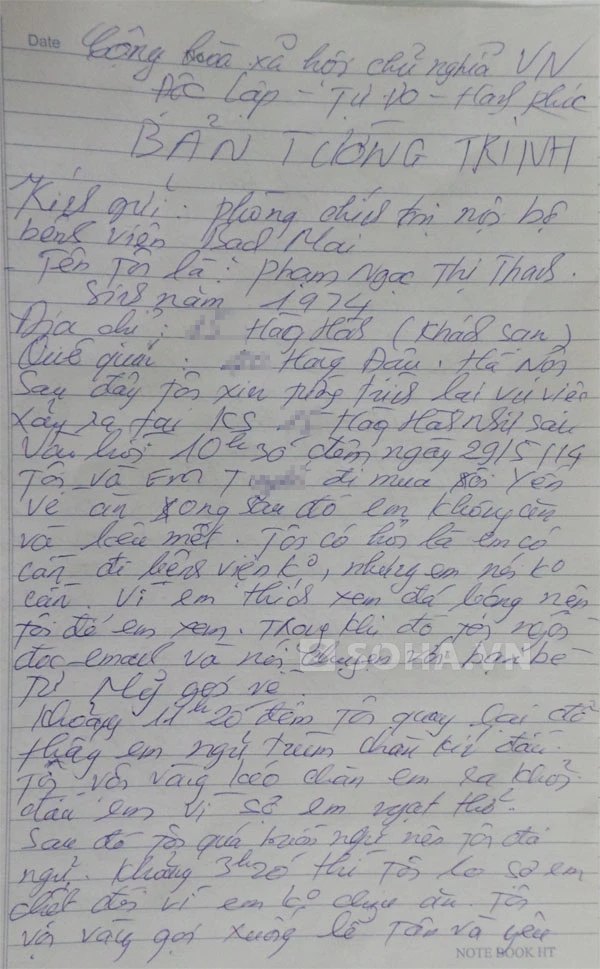 Date
Cộng hoà xả hội chủ nghỉa VN
Độc lập - Tự do - Hanh phúc
BẢN TƯỜNG TRÌNH
Kính gửi: phòng chính trị nội bộ
bệnh viện Bach Mai
- Tên tôi là: phạm Ngọc Thị Thanh.
Sinh năm 1974
Địa chỉ: Hàng Hành (Khách sạn)
Quê quán. Hàng Đậu. Hà Nội
Sau đây tôi xin tường trình lại vụ việc
xảy ra tại KS Hàng Hành như sau
Vào hồi 10h30 đêm ngày 29/5/14
Tôi và Em T đi mua xôi Yến
về ăn xong sau đó em không ăn
và kêu mệt. Tôi có hỏi là em có
cần đi bệnh viện ko, nhưng em nói ko
cần. Vì em thích xem đá bóng nên
tôi để em xem. Trong khi đó tôi ngồi
đọc email và nói chuyện với bạn bè
Từ Mỹ gọi về.
SOHA.VN
Khoảng 11h20 đêm tôi quay lại đã
thấy em ngủ trùm chăn kín đầu.
Tôi vội vàng kéo chăn em ra khỏi
đầu em vì sợ em ngạt thở.
Sau đó tôi quá buồn ngủ nên tôi đã
ngủ. Khoảng 3h20 thì tôi lo sợ em
chết đói vì em ko chịu ăn. Tôi
vội vàng gọi xuống lễ tân và yêu
NOTE BOOK HT